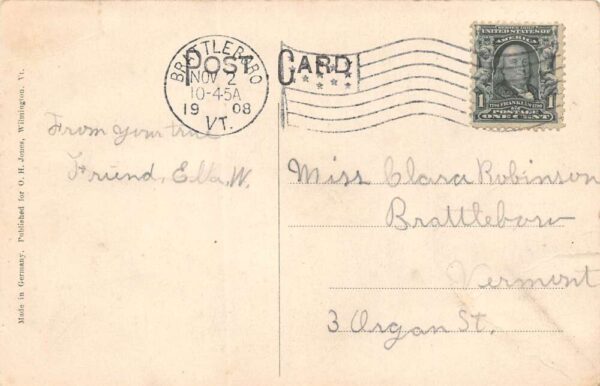 POST CARD
BRATTLEBORO
NOV 2
10-45A
1908
VT.
UNITED STATES OF AMERICA
1 FRANKLIN 1
POSTAGE
ONE CENT
From your true
Friend, Ella, W.
Miss Clara Robinson
Brattleboro
Vermont
3 Organ St.
Made in Germany. Published for O. H. Jones, Wilmington, Vt.